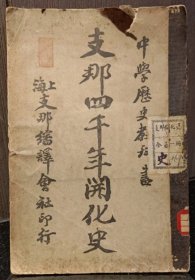 中學歷史教科書
支那四千年開化史
上海支那繙譯會社印行
史